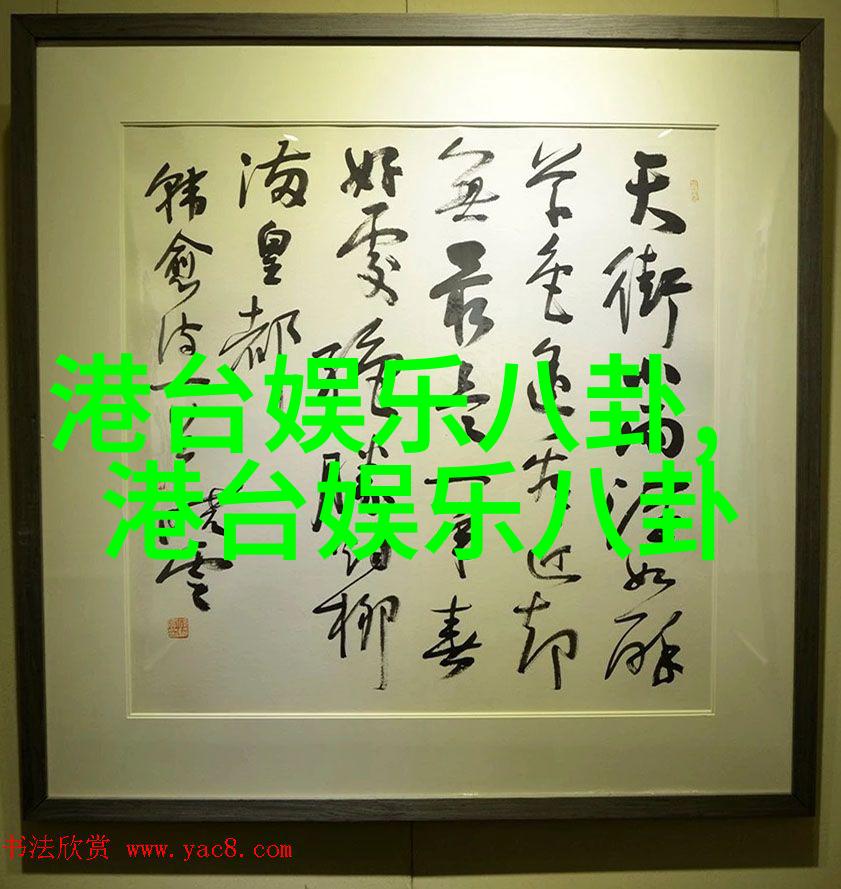 天街小雨润如酥
草色遥看近却
無最是一年春
好處絕勝烟柳
满皇都
韓愈诗一
港台娱乐八卦，
港台娱乐八卦
书法欣赏 www.yac8.com